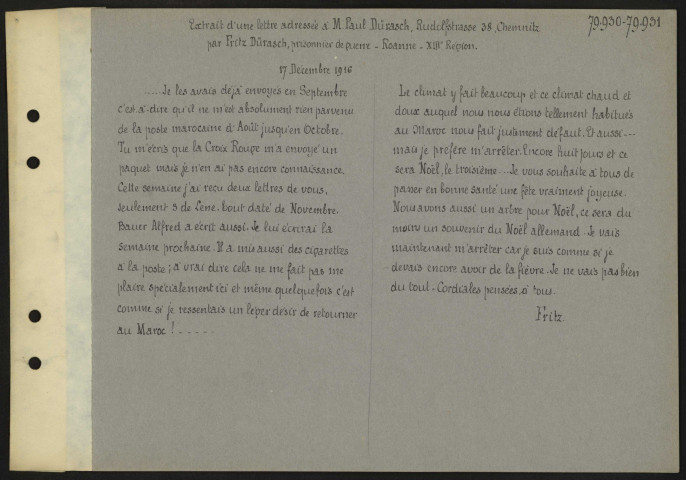 Extrait d'une lettre adressée à M. Paul Dürasch, Rudolfstrasse 38, Chemnitz
79.930-79.931
par Fritz Dürasch, prisonnier de guerre - Roanne - XIIIe Région.
17 Décembre 1916
.....Je les avais déjà envoyés en Septembre
c'est-à-dire qu'il ne m'est absolument rien parvenu
de la poste marocaine d'Août jusqu'en Octobre.
Tu m'écris que la Croix Rouge m'a envoyé un
paquet mais je n'en ai pas encore connaissance.
Cette semaine j'ai reçu deux lettres de vous,
seulement 3 de Lene. tout daté de Novembre.
Bauer Alfred a écrit aussi. Je lui écrirai la
semaine prochaine. Il a mis aussi des cigarettes
à la poste; à vrai dire cela ne me fait pas me
plaire spécialement ici et même quelquefois c'est
comme si je ressentais un léger désir de retourner
au Maroc ! - - - - -
Le climat y fait beaucoup et ce climat chaud et
doux auquel nous nous étions tellement habitués
au Maroc nous fait justement défaut. Et aussi ---
mais je préfère m'arrêter. Encore huit jours et ce
sera Noël, le troisième... Je vous souhaite à tous de
passer en bonne santé une fête vraiment joyeuse.
Nous avons aussi un arbre pour Noël, ce sera du
moins un souvenir du Noël allemand. Je vais
maintenant m'arrêter car je suis comme si je
devais encore avoir de la fièvre. Je ne vais pas bien
du tout - Cordiales pensées à tous.
Fritz.